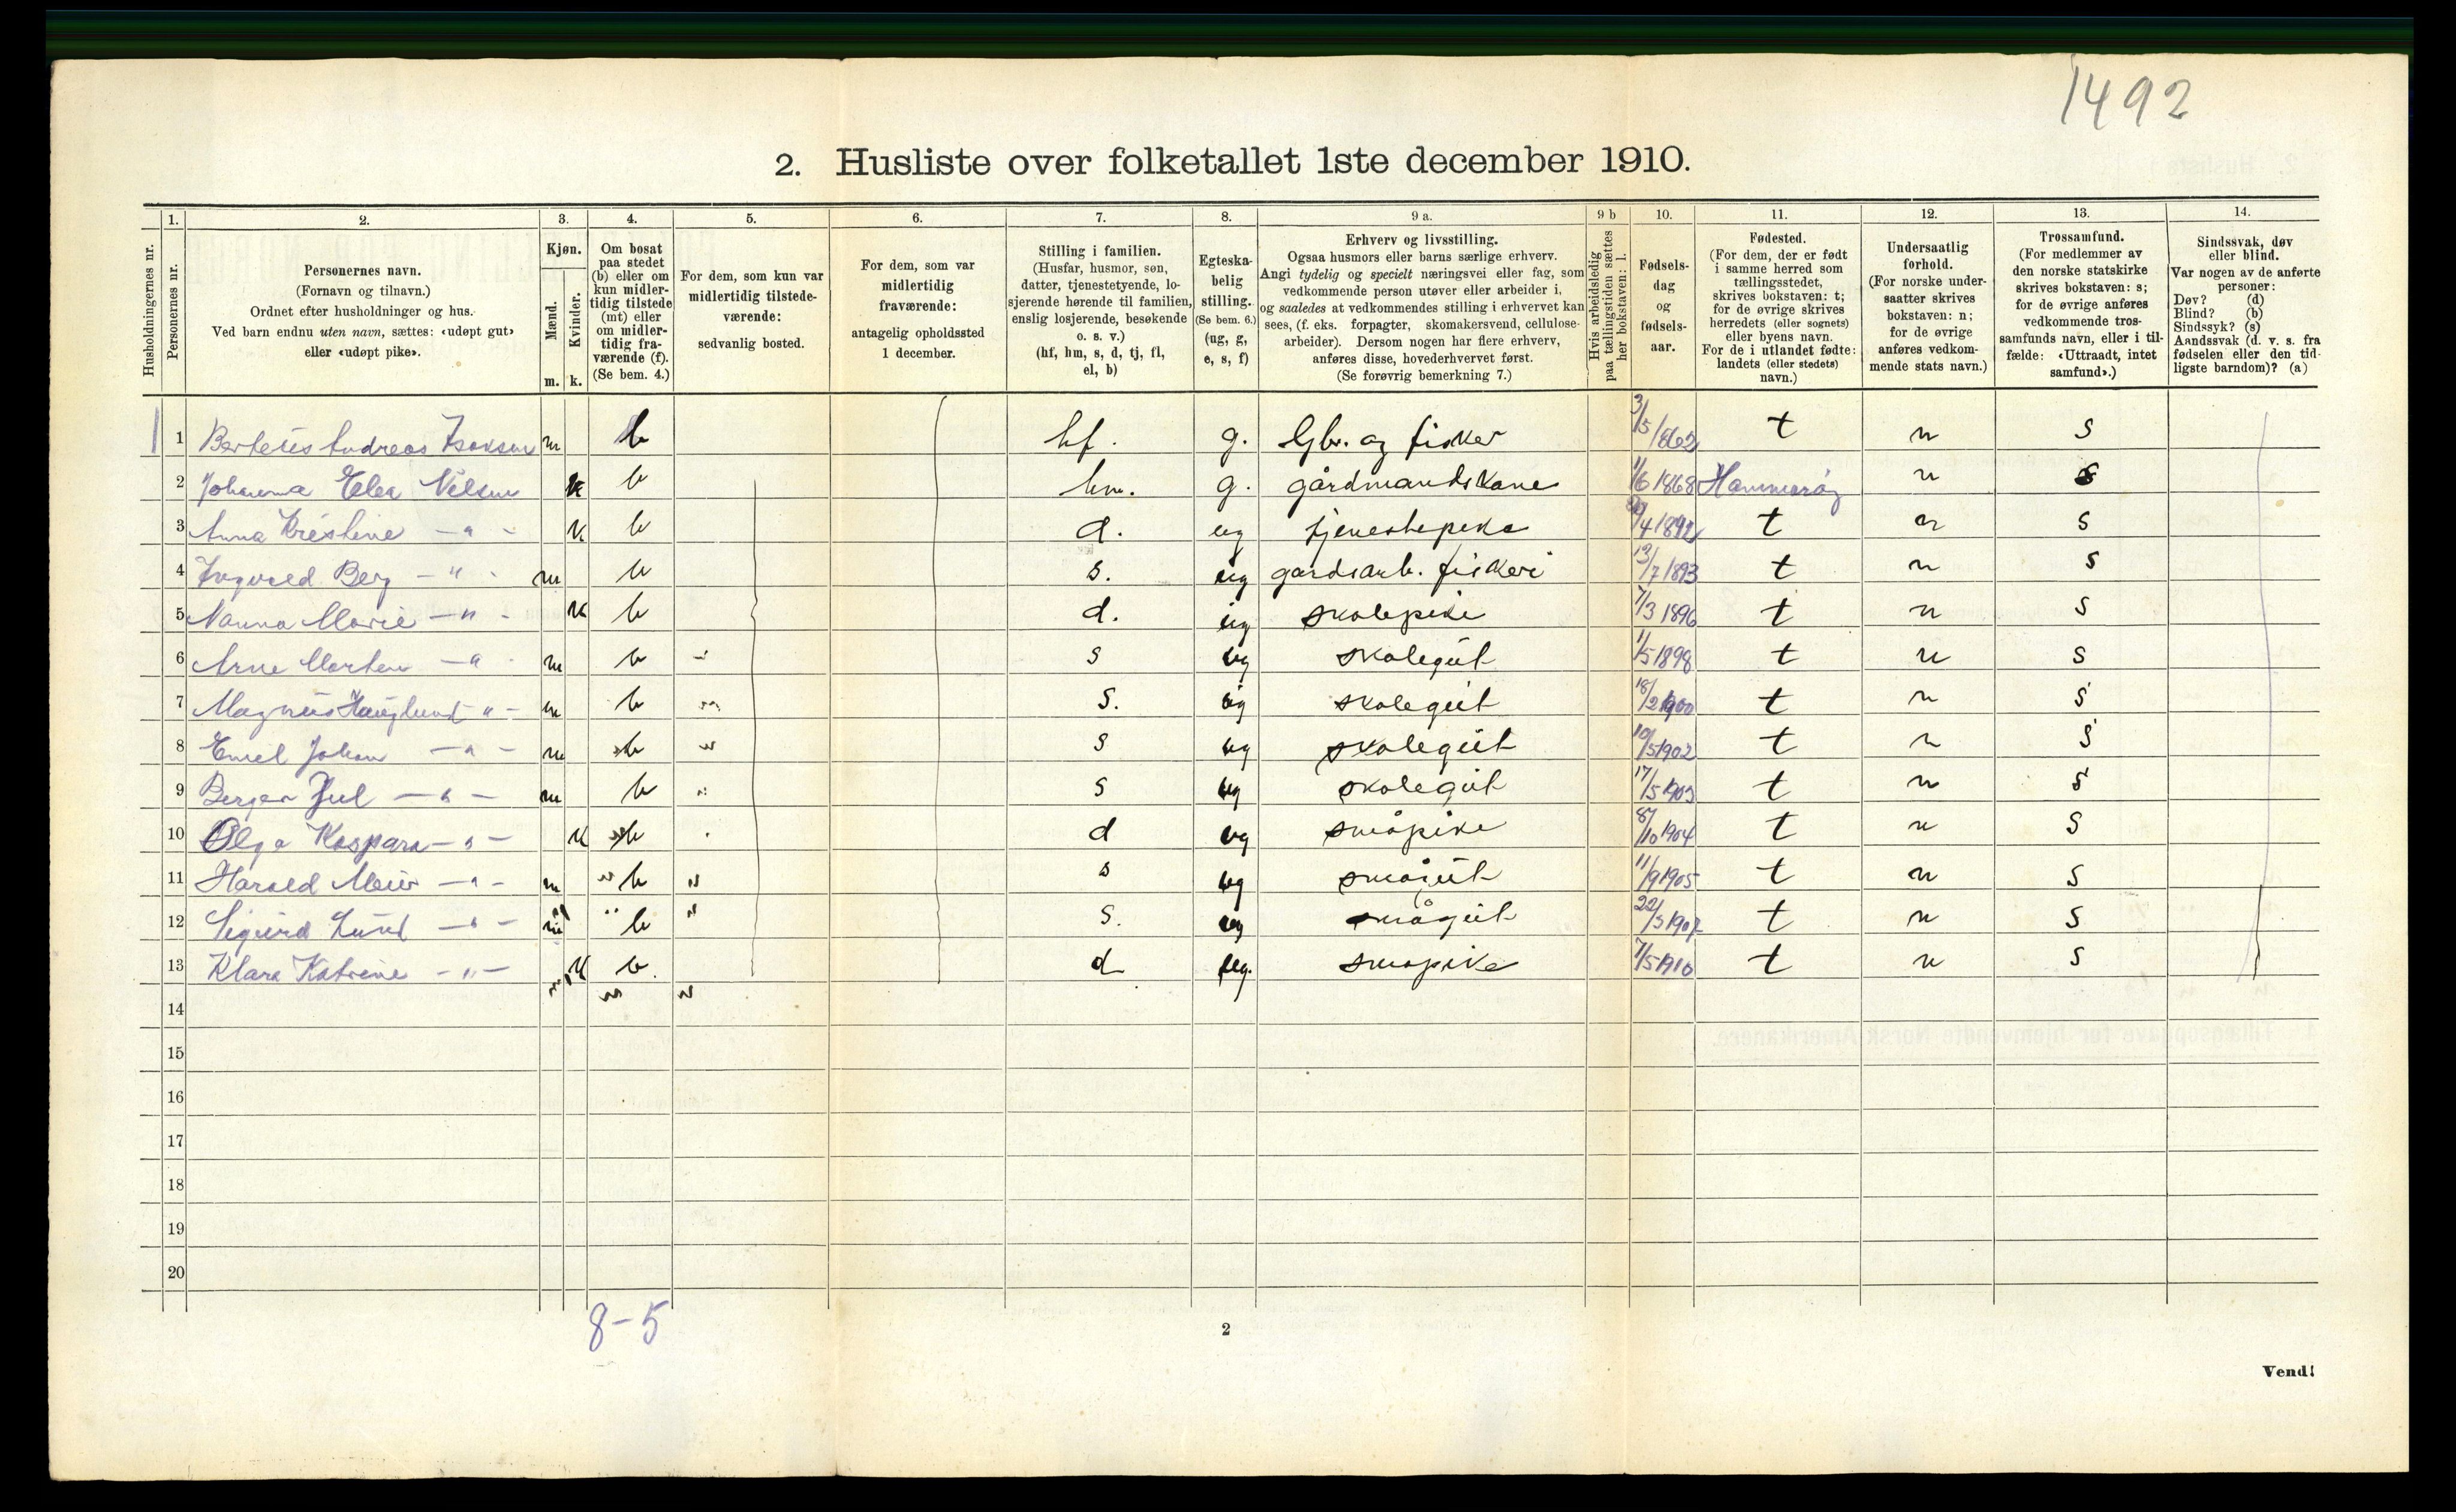 1492
2. Husliste over folketallet 1ste december 1910.
Husholdningernes nr.
1.
Personernes nr.
2.
Personernes navn.
(Fornavn og tilnavn.)
Ordnet efter husholdninger og hus.
Ved barn endnu uten navn, sættes: «udøpt gut»
eller «udøpt pike».
3.
Kjøn.
Mænd.
Kvinder.
m. k.
4.
Om bosat
paa stedet
(b) eller om
kun midler-
tidig tilstede
(mt) eller
om midler-
tidig fra-
værende (f).
(Se bem. 4.)
5.
For dem, som kun var
midlertidig tilstede-
værende:
sedvanlig bosted.
6.
For dem, som var
midlertidig
fraværende:
antagelig opholdssted
1 december.
7.
Stilling i familien.
(Husfar, husmor, søn,
datter, tjenestetyende, lo-
sjerende hørende til familien,
enslig losjerende, besøkende
o. s. v.)
(hf, hm, s, d, tj, fl,
el, b)
8.
Egteska-
belig
stilling.
(Se bem. 6.)
(ug, g,
e, s, f)
9 a.
Erhverv og livsstilling.
Ogsaa husmors eller barns særlige erhverv.
Angi tydelig og specielt næringsvei eller fag, som
vedkommende person utøver eller arbeider i,
og saaledes at vedkommendes stilling i erhvervet kan
sees, (f. eks. forpagter, skomakersvend, cellulose-
arbeider). Dersom nogen har flere erhverv,
anføres disse, hovederhvervet først.
(Se forøvrig bemerkning 7.)
9 b
Hvis arbeidsledig
paa tællingstiden sættes
her bokstaven: l.
10.
Fødsels-
dag
og
fødsels-
aar.
11.
Fødested.
(For dem, der er født
i samme herred som
tællingsstedet,
skrives bokstaven: t;
for de øvrige skrives
herredets (eller sognets)
eller byens navn.
For de i utlandet fødte:
landets (eller stedets)
navn.)
12.
Undersaatlig
forhold.
(For norske under-
saatter skrives
bokstaven: n;
for de øvrige
anføres vedkom-
mende stats navn.)
13.
Trossamfund.
(For medlemmer av
den norske statskirke
skrives bokstaven: s;
for de øvrige anføres
vedkommende tros-
samfunds navn, eller i til-
fælde: «Uttraadt, intet
samfund».)
14.
Sindssvak, døv
eller blind.
Var nogen av de anførte
personer:
Døv? (d)
Blind? (b)
Sindssyk? (s)
Aandssvak (d. v. s. fra
fødselen eller den tid-
ligste barndom)? (a)
1 1 Berteus Andreas Isaksen m b hf. g. Gbr. og fisker 3/5 1862 t n s
2 Johanna Elea Nilsen k b hm. g. gårdmandskone 1/6 1868 Hammerøy n s
3 Anna Kristine — " - k b d. ug tjenestepike /4 1892 t n s
4 Ingvald Berg — " - m b s. ug gardsarb. fiskeri 13/7 1893 t n s
5 Nanna Marie — " - k b d. ug skolepike 7/3 1896 t n s
6 Arne Morten — " - m b s ug skolegut 1/5 1898 t n s
7 Magnus Hauglund " - m b s. ug skolegut 18/2 1900 t n s
8 Emil Johan — " - m b s ug skolegut 10/5 1902 t n s
9 Berger Jul — " - m b s ug skolegut 17/5 1903 t n s
10 Olga Kaspara — " - k b d ug småpike /10 1904 t n s
11 Harald Meier — " - m b s ug smågut 11/9 1905 t n s
12 Sigurd Lund — " - m b s. ug smågut 22/5 1907 t n s
13 Klara Katrine — " - k b. d ug. småpike 7/5 1910 t n s
14
15
16
17
18
19
20
8-5
2
Vend!